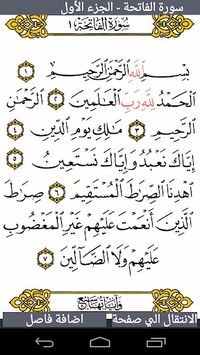 سورة الفاتحة - الجزء الأول
سُورَةُ الْفَاتِحَة ١
بِسْمِ اللَّهِ الرَّحْمَٰنِ الرَّحِيمِ ١
الْحَمْدُ لِلَّهِ رَبِّ الْعَالَمِينَ ٢ الرَّحْمَٰنِ
الرَّحِيمِ ٣ مَالِكِ يَوْمِ الدِّينِ ٤
إِيَّاكَ نَعْبُدُ وَإِيَّاكَ نَسْتَعِينُ ٥
اهْدِنَا الصِّرَاطَ الْمُسْتَقِيمَ ٦ صِرَاطَ
الَّذِينَ أَنْعَمْتَ عَلَيْهِمْ غَيْرِ الْمَغْضُوبِ
عَلَيْهِمْ وَلَا الضَّالِّينَ ٧
الانتقال الي صفحة
اضافة فاصل